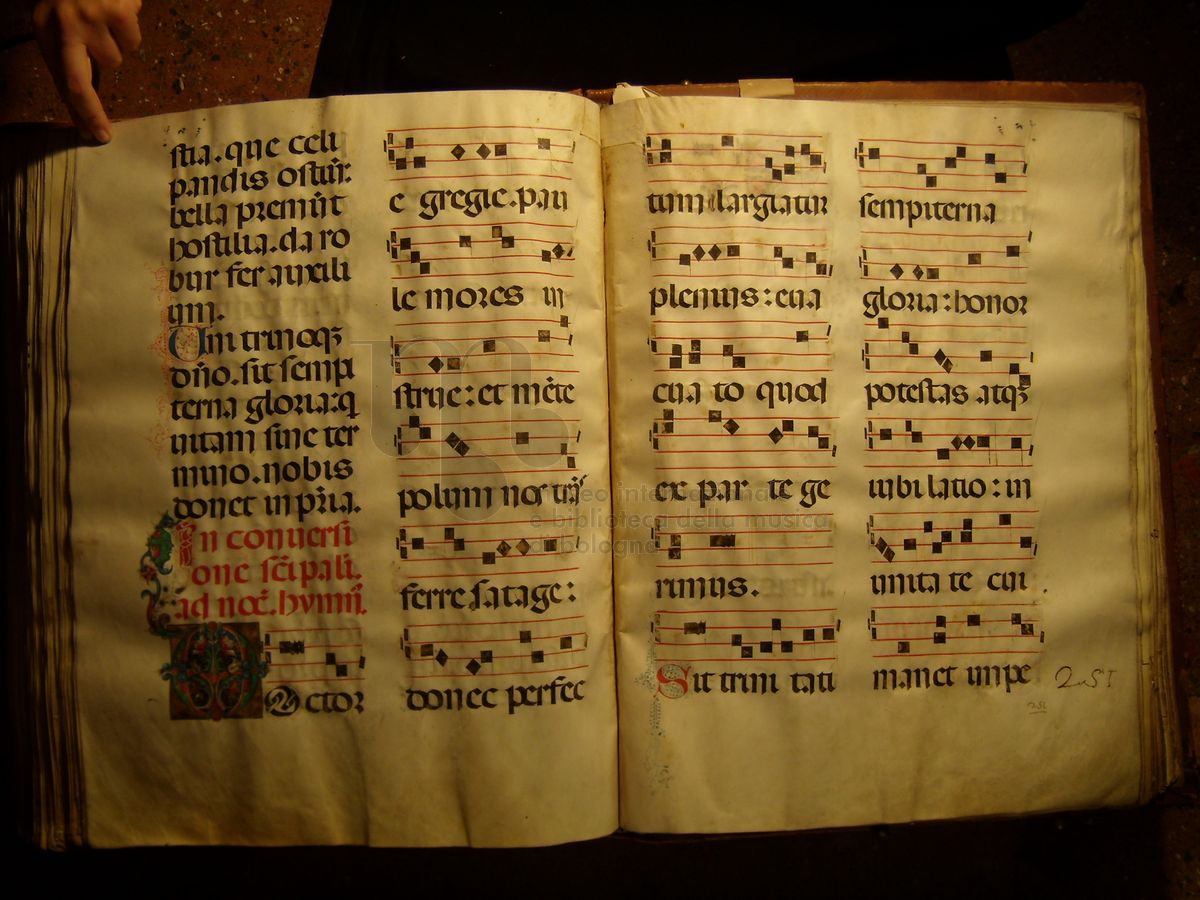 stia. que celi
pandis ostiū:
bella premūt
hostilia. da ro
bur fer auxili
um.
Uni trinoqȝ
dño. sit sempi
terna gloria: q
uitam sine ter
mino. nobis
donet in pr̄ia.
In conuersi
one sc̄i pali.
ad noc̄. hymn̄.
Doctor
e gregie. pau
le mores in
strue: et mēte
polum nos trā
ferre satage:
donec perfec
tum largiatur
plenius: eua
cua to quod
ex par te ge
rimus.
Sit trini tati
sempiterna
gloria: honor
potestas atqȝ
iubilatio: in
unita te cui
manet impe
251
251
museo internazionale
e biblioteca della musica
di bologna